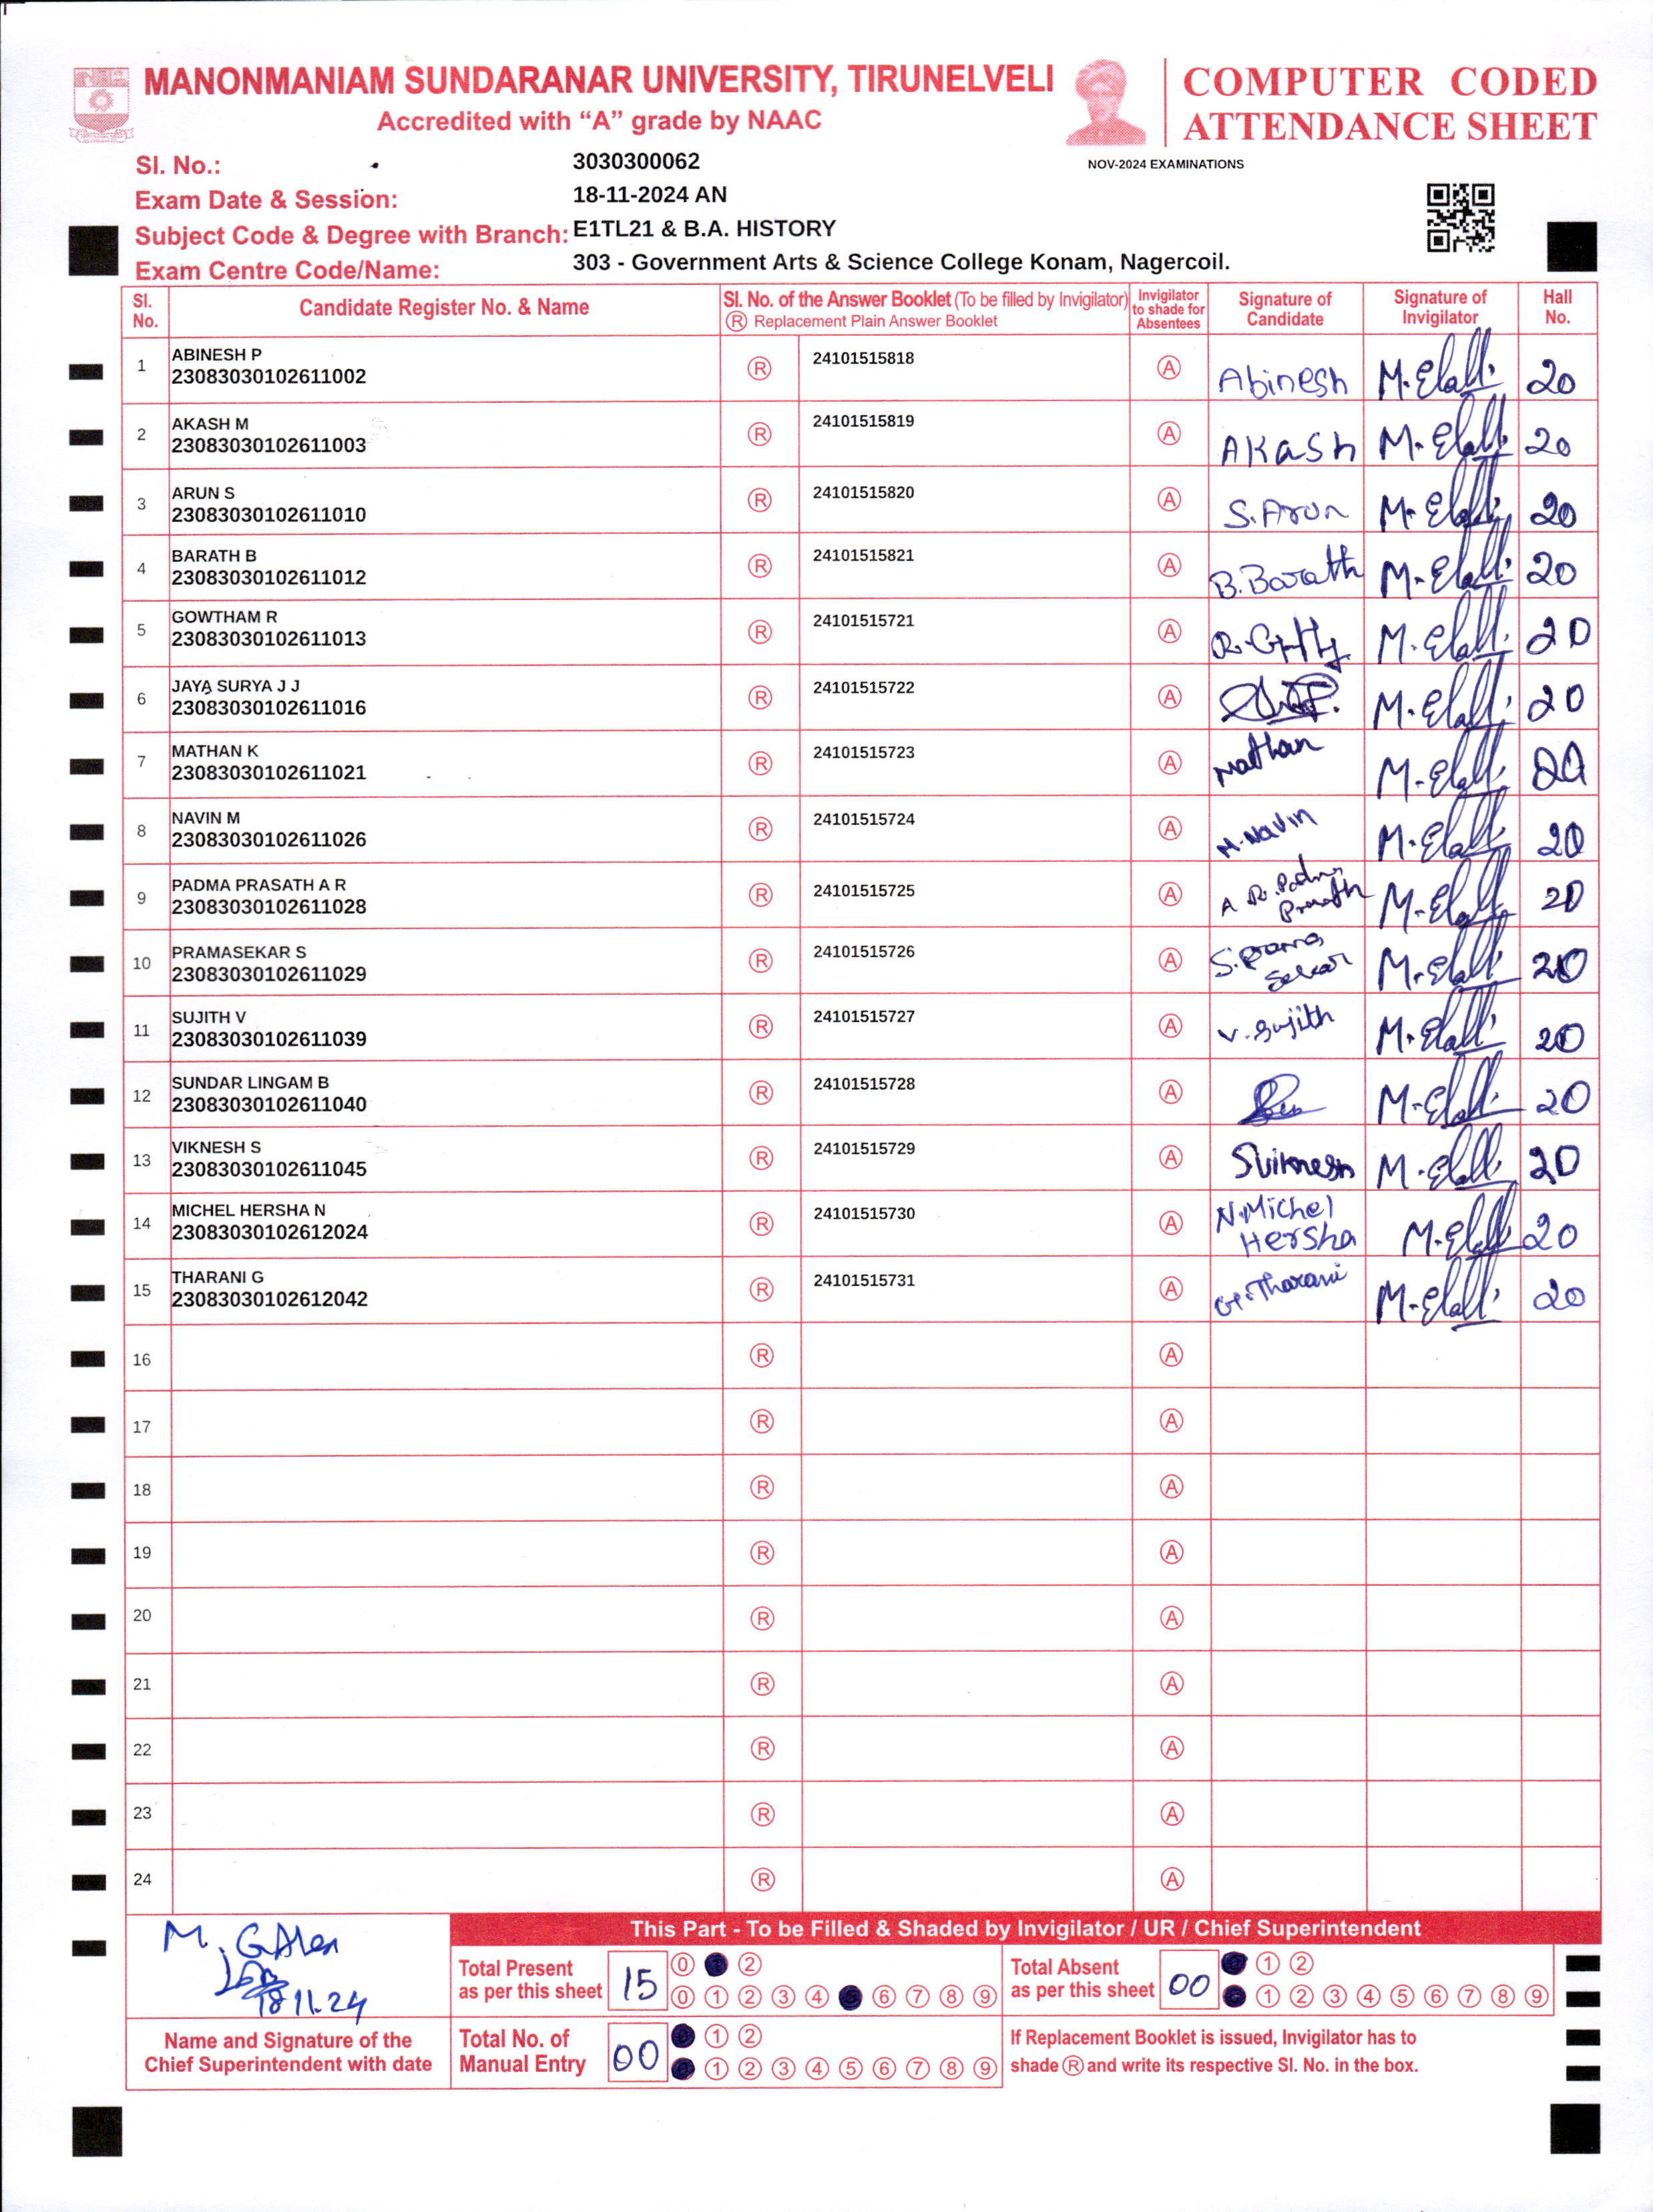 MANONMANIAM SUNDARANAR UNIVERSITY, TIRUNELVELI
Accredited with “A” grade by NAAC
COMPUTER CODED
ATTENDANCE SHEET
NOV-2024 EXAMINATIONS
Sl. No.: 3030300062
Exam Date & Session: 18-11-2024 AN
Subject Code & Degree with Branch: E1TL21 & B.A. HISTORY
Exam Centre Code/Name: 303 - Government Arts & Science College Konam, Nagercoil.
Sl. No. Candidate Register No. & Name Sl. No. of the Answer Booklet (To be filled by Invigilator) Ⓡ Replacement Plain Answer Booklet Invigilator to shade for Absentees Signature of Candidate Signature of Invigilator Hall No.
1 ABINESH P 23083030102611002 Ⓡ 24101515818 Ⓐ Abinesh 20
2 AKASH M 23083030102611003 Ⓡ 24101515819 Ⓐ AKash 20
3 ARUN S 23083030102611010 Ⓡ 24101515820 Ⓐ S.Arun 20
4 BARATH B 23083030102611012 Ⓡ 24101515821 Ⓐ B.Barath 20
5 GOWTHAM R 23083030102611013 Ⓡ 24101515721 Ⓐ 20
6 JAYA SURYA J J 23083030102611016 Ⓡ 24101515722 Ⓐ 20
7 MATHAN K 23083030102611021 Ⓡ 24101515723 Ⓐ Mathan 20
8 NAVIN M 23083030102611026 Ⓡ 24101515724 Ⓐ M.Navin 20
9 PADMA PRASATH A R 23083030102611028 Ⓡ 24101515725 Ⓐ 20
10 PRAMASEKAR S 23083030102611029 Ⓡ 24101515726 Ⓐ 20
11 SUJITH V 23083030102611039 Ⓡ 24101515727 Ⓐ V.Sujith 20
12 SUNDAR LINGAM B 23083030102611040 Ⓡ 24101515728 Ⓐ 20
13 VIKNESH S 23083030102611045 Ⓡ 24101515729 Ⓐ SViknesh 20
14 MICHEL HERSHA N 23083030102612024 Ⓡ 24101515730 Ⓐ N.Michel Hersha 20
15 THARANI G 23083030102612042 Ⓡ 24101515731 Ⓐ G.Tharani 20
16 Ⓡ Ⓐ
17 Ⓡ Ⓐ
18 Ⓡ Ⓐ
19 Ⓡ Ⓐ
20 Ⓡ Ⓐ
21 Ⓡ Ⓐ
22 Ⓡ Ⓐ
23 Ⓡ Ⓐ
24 Ⓡ Ⓐ
18.11.24
Name and Signature of the
Chief Superintendent with date
This Part - To be Filled & Shaded by Invigilator / UR / Chief Superintendent
Total Present
as per this sheet 15
0 2
0 1 2 3 4 6 7 8 9
Total Absent
as per this sheet 00
1 2
1 2 3 4 5 6 7 8 9
Total No. of
Manual Entry 00
1 2
1 2 3 4 5 6 7 8 9
If Replacement Booklet is issued, Invigilator has to
shade Ⓡ and write its respective Sl. No. in the box.